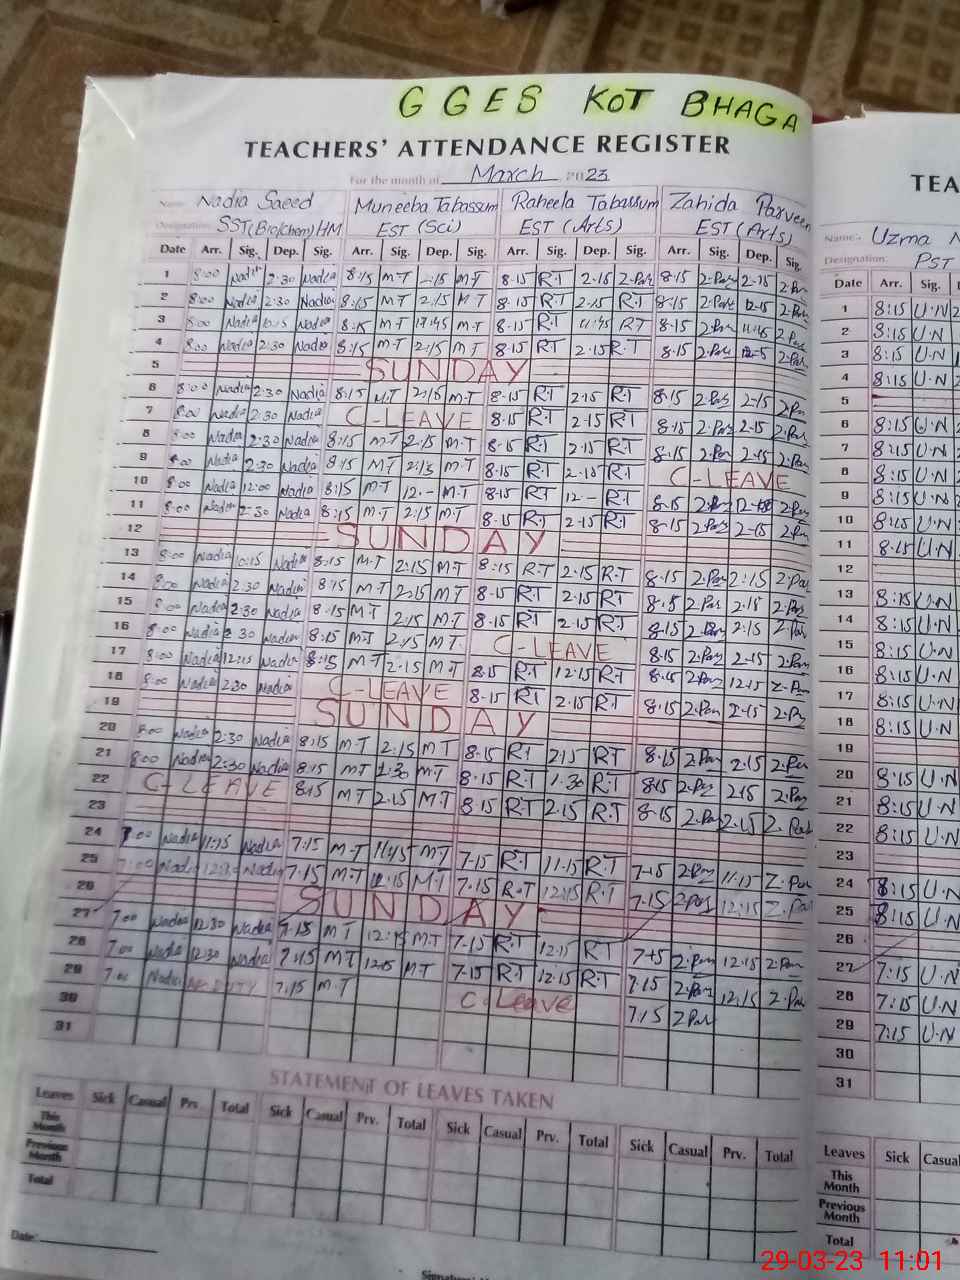 GGES KOT BHAGA
TEACHERS' ATTENDANCE REGISTER
TEA
For the month of March 2023
Name: Nadia Saeed Muneeba Tabassum Raheela Tabassum Zahida Parveen
Name:- Uzma
Designation: SST(Bio/Chem)HM EST (Sci) EST (Arts) EST (Arts)
Designation: PST
Date Arr. Sig. Dep. Sig. Arr. Sig. Dep. Sig. Arr. Sig. Dep. Sig. Arr. Sig. Dep. Sig.
Date Arr. Sig.
1 8:00 Nadia 2:30 Nadia 8:15 M.T 2:15 M.T 8.15 R.T 2.15 8.15 2.Par 2.15 2.Par
1 8:15 U.N
2 8:00 Nadia 2:30 Nadia 8:15 M.T 2:15 M.T 8.15 R.T 2.15 R.T 8.15 2.Par 2.Par
2 8:15 U.N
3 8:00 Nadia Nadia 8:15 M.T M.T 8.15 R.T 11.45 RT 8.15 2.Par 2.Par
3 8:15 U.N
4 8:00 Nadia 2:30 Nadia 8:15 M.T 2:15 M.T 8.15 RT 2.15 R.T 8.15 2.Par 2.Par
4 8:15 U.N
5 SUNDAY
5
6 8:00 Nadia 2:30 Nadia 8:15 M.T M.T 8.15 R.T 2.15 R.T 8.15 2.Par 2.15 2.Par
6 8:15 U.N
7 8:00 Nadia 2:30 Nadia C-LEAVE 8.15 R.T 2.15 R.T 8.15 2.Par 2.15 2.Par
7 8:15 U.N
8 8:00 Nadia 2:30 Nadia 8:15 M.T 2:15 M.T 8.15 R.T 2.15 R.T 8.15 2.Par 2.15 2.Par
8 8:15 U.N
9 8:00 Nadia 2:30 Nadia 8:15 M.T 2:15 M.T 8.15 R.T 2.15 R.T C-LEAVE
9 8:15 U.N
10 8:00 Nadia 12:00 Nadia 8:15 M.T 12.- M.T 8.15 R.T 12.- R.T 8.15 2.Par 2.Par
10 8:15 U.N
11 8:00 Nadia 2:30 Nadia 8:15 M.T 2:15 M.T 8.15 R.T 2.15 R.T 8.15 2.Par 2.15 2.Par
11 8.15 U.N
12 SUNDAY
12
13 8:00 Nadia 10:15 Nadia 8:15 M.T 2:15 M.T 8:15 R.T 2.15 R.T 8.15 2.Par 2:15 2.Par
13 8:15 U.N
14 8:00 Nadia 2:30 Nadia 8:15 M.T 2:15 M.T 8.15 R.T 2.15 R.T 2.Par 2.15 2.Par
14 8:15 U.N
15 8:00 Nadia 2:30 Nadia 8:15 M.T 2:15 M.T 8.15 R.T 2.15 R.T 8.15 2.Par 2:15 2.Par
15 8:15 U.N
16 8:00 Nadia 2:30 Nadia 8:15 M.T 2:15 M.T C-LEAVE 8.15 2.Par 2.15 2.Par
16 8:15 U.N
17 8:00 Nadia 12:15 Nadia 8:15 M.T 2.15 M.T 8.15 R.T 12.15 R.T 8.15 2.Par 12.15 2.Par
17 8:15 U.N
18 8:00 Nadia 2:30 Nadia C-LEAVE 8.15 R.T 2.15 R.T 8.15 2.Par 2.15 2.Par
18 8:15 U.N
19 SUNDAY
19
20 8:00 Nadia 2:30 Nadia 8:15 M.T 2:15 M.T 8.15 R.T 2.15 R.T 8.15 2.Par 2.15 2.Par
20 8:15 U.N
21 8:00 Nadia 2:30 Nadia 8:15 M.T 1:30 M.T 8.15 R.T 1.30 R.T 8.15 2.Par 2.15 2.Par
21 8:15 U.N
22 C-LEAVE 8:15 M.T 2.15 M.T 8.15 R.T 2.15 R.T 8.15 2.Par 2.15 2.Par
22 8:15 U.N
23
23
24 7:00 Nadia 11:15 Nadia 7:15 M.T 11:15 M.T 7.15 R.T 11.15 R.T 7.15 2.Par 11.15 2.Par
24 8:15 U.N
25 7:00 Nadia 12:30 Nadia 7.15 M.T 12.15 M.T 7.15 R.T 12.15 R.T 7.15 2.Par 12.15 2.Par
25 8:15 U.N
26 SUNDAY
26
27 7.00 Nadia 12.30 Nadia 7.15 M.T 12:15 M.T 7.15 R.T 12.15 R.T 7.15 2.Par 12.15 2.Par
27 7:15 U.N
28 7.00 Nadia 12:30 Nadia 7:15 M.T 12.15 M.T 7.15 R.T 12.15 R.T 7.15 2.Par 12.15 2.Par
28 7:15 U.N
29 7.00 Nadia 7.15 M.T C-Leave 7.15 2.Par
29 7:15 U.N
30
30
31
31
STATEMENT OF LEAVES TAKEN
Leaves Sick Casual Prv. Total Sick Casual Prv. Total Sick Casual Prv. Total Sick Casual Prv. Total
Leaves Sick Casual
This Month
This Month
Previous Month
Previous Month
Total
Total
Date:
29-03-23 11:01